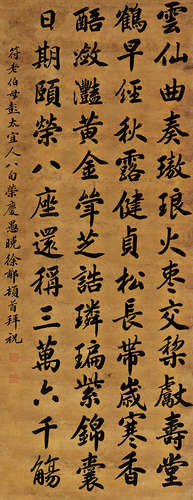 雲仙曲奏琅火棗交梨獻壽堂
鶴早經秋露健貞松長帶歲寒香
醅瀲灩黃金斝芝誥璘㻞紫錦囊
日期頤榮八座還稱三萬六千觴
符老伯母彭太宜人八旬榮慶 愚晚徐郙頓首拜祝